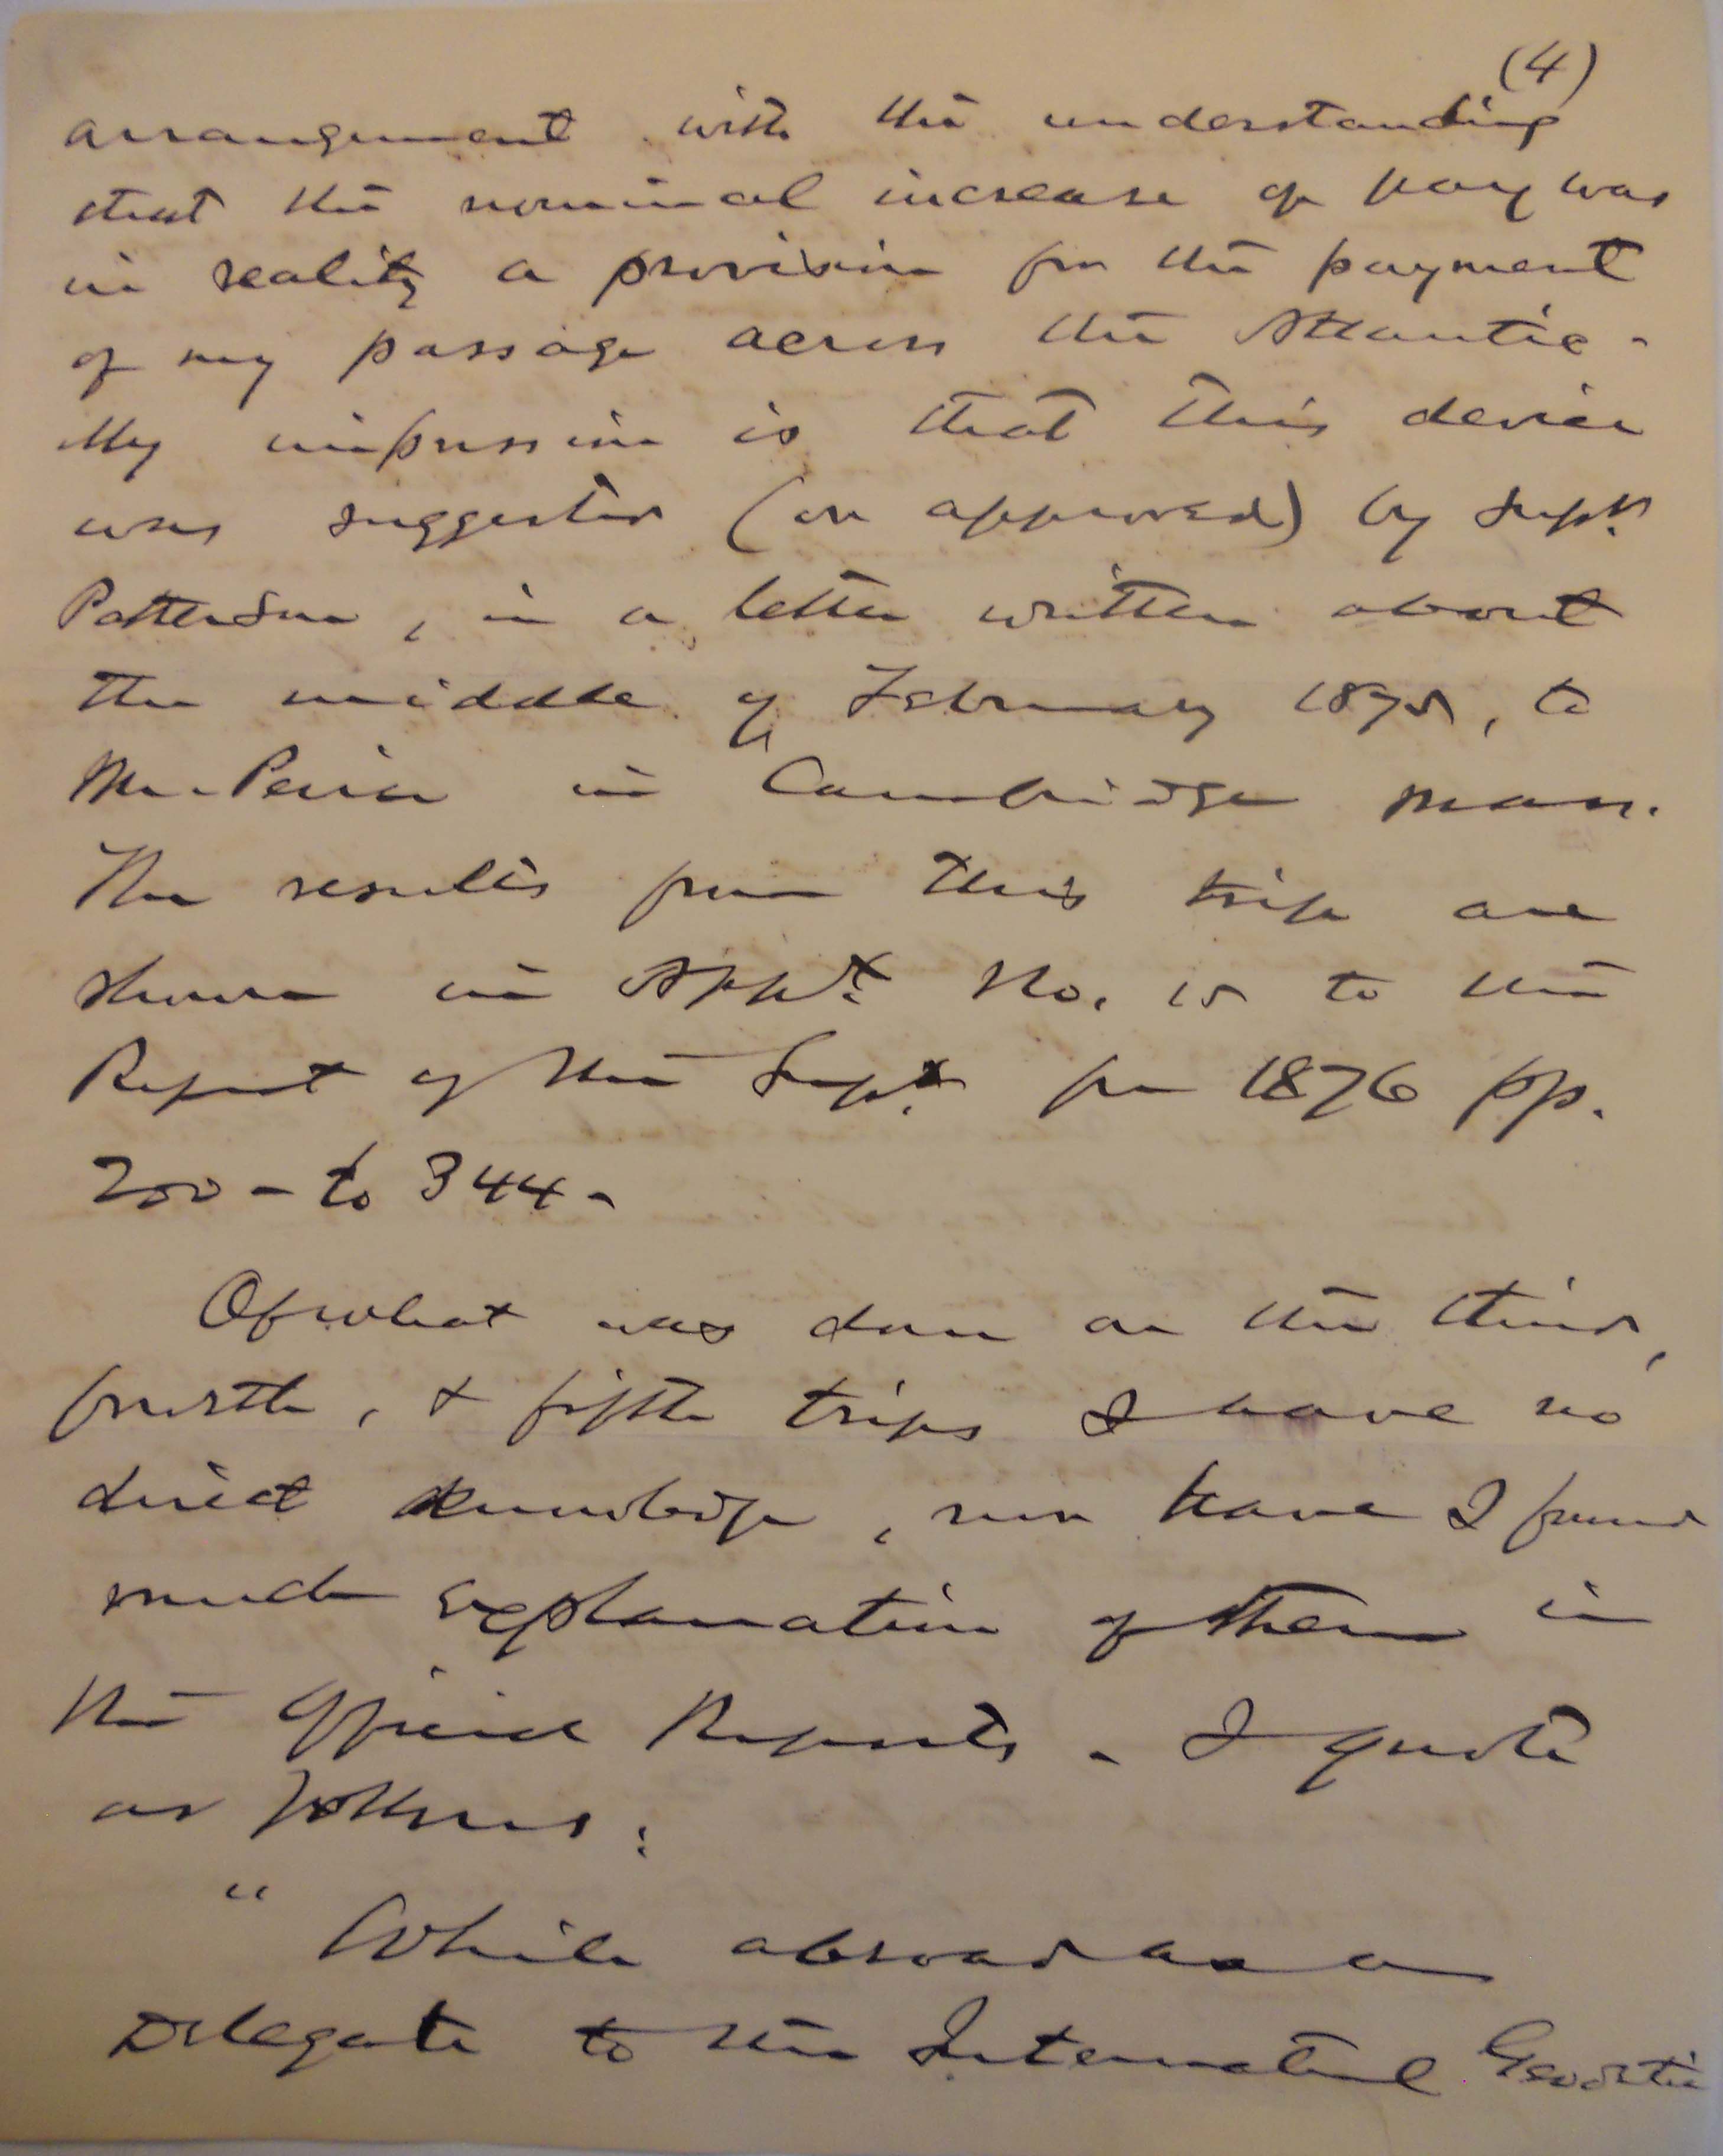 (4)
arrangement with the understanding
that the nominal increase of pay was
in reality a provision for the payment
of my passage across the Atlantic -
My impression is that this device
was suggested (or approved) by Supt.
Patterson, in a letter written about
the middle of February 1875, to
Mr. Peirce in Cambridge Mass.
The results from this trip are
shown in Appx. No. 15 to the
Report of the Supt. for 1876 pp.
200 - to 344 -
Of what was done on the third,
fourth, & fifth trips I have no
direct knowledge, nor have I found
much explanation of them in
the Official Reports - I quote
as follows:
" While abroad as a
Delegate to the International Geodetic